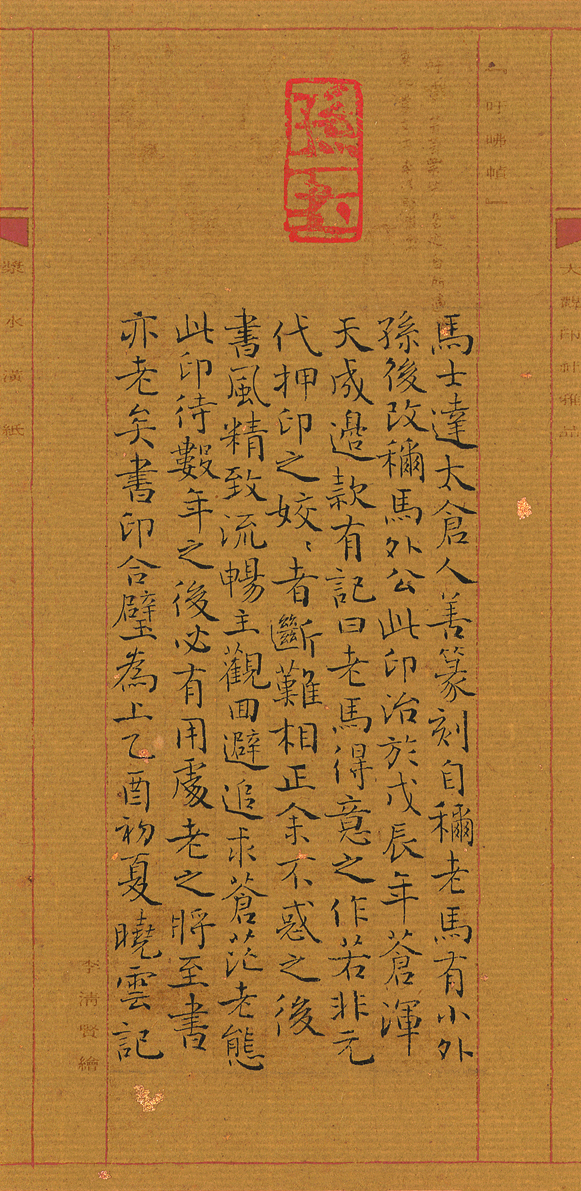 馬士達太倉人善篆刻自穪老馬有小外
孫後改穪馬外公此印治於戊辰年蒼渾
天成邊款有記曰老馬得意之作若非元
代押印之姣〻者斷難相正余不惑之後
書風精致流暢主觀囬避追求蒼茫老態
此印待數年之後必有用處老之將至書
亦老矣書印合璧為上乙酉初夏曉雲記
李清賢繪
漿水潢紙